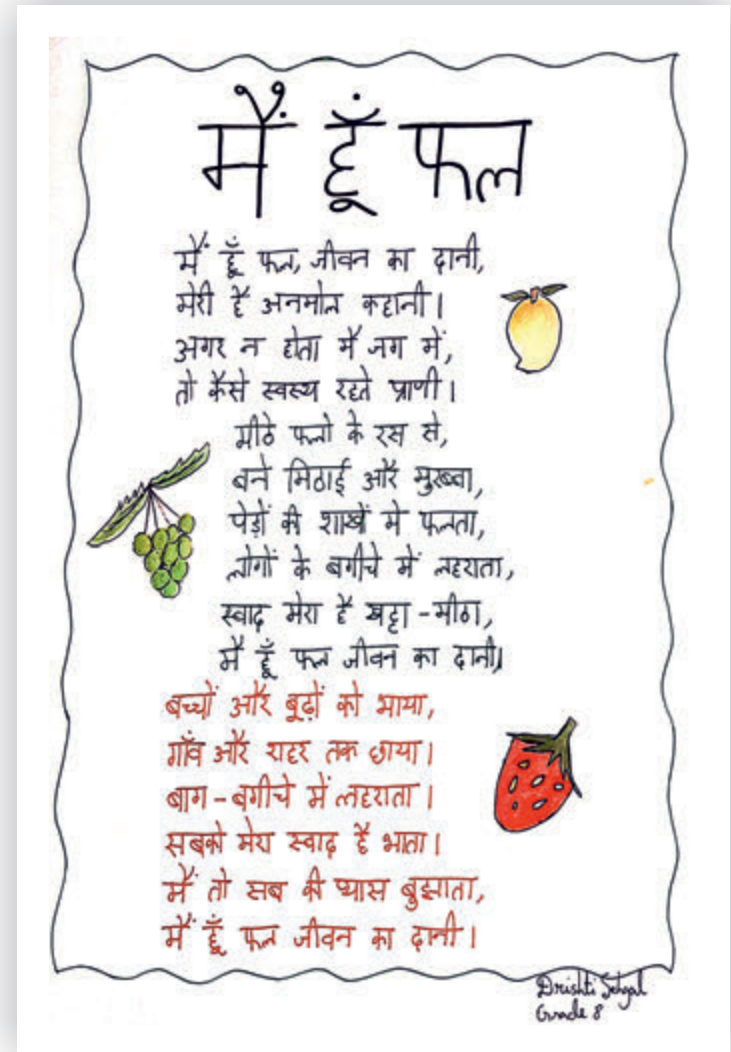 मैं हूँ फल
मैं हूँ फल, जीवन का दानी,
मेरी है अनमोल कहानी।
अगर न होता मैं जग में,
तो कैसे स्वस्थ रहते प्राणी।
मीठे फलो के रस से,
बने मिठाई और मुरब्बा,
पेड़ों की शाखें मे फलता,
लोगों के बगीचे में लहराता,
स्वाद मेरा है खट्टा-मीठा,
मैं हूँ फल जीवन का दानी।
बच्चों और बूढ़ों को भाया,
गाँव और शहर तक छाया।
बाग-बगीचे में लहराता।
सबको मेरा स्वाद है भाता।
मैं तो सब की प्यास बुझाता,
मैं हूँ फल जीवन का दानी।
Drishti Sehgal
Grade 8